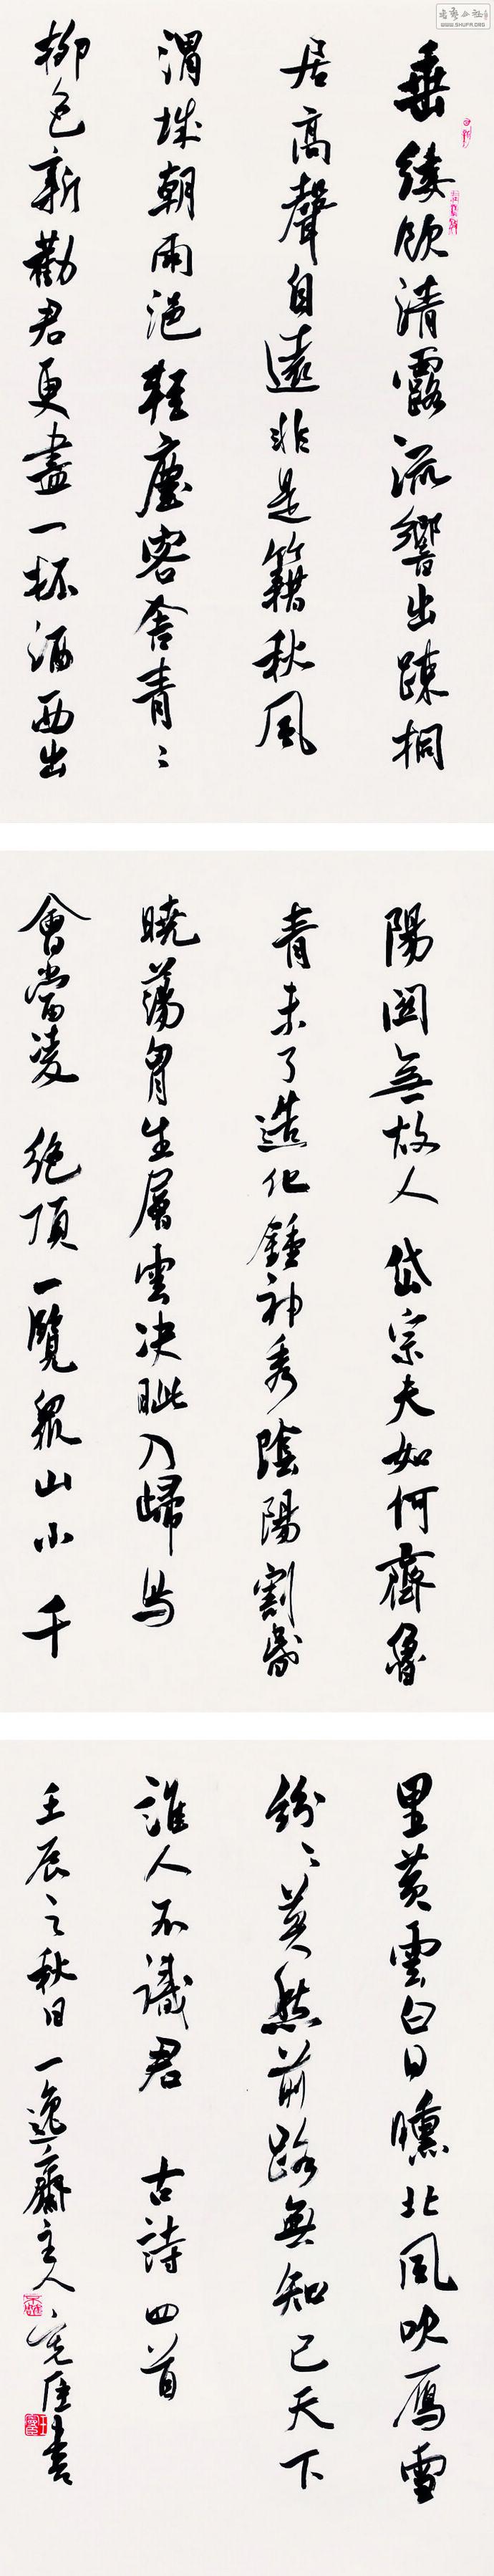 垂緌飲清露流響出疎桐
居高聲自遠非是籍秋風
渭城朝雨浥輕塵客舍青〻
柳色新勸君更盡一杯酒西出
陽関無故人岱宗夫如何齊魯
青未了造化鍾神秀陰陽割昏
曉蕩胷生層雲决眦入歸鸟
會當凌絶頂一覽衆山小千
里黄雲白日曛北風吹雁雪
紛〻莫愁前路無知己天下
誰人不識君古詩四首
壬辰之秋日一逸齋主人
書
WWW.SHUFA.ORG